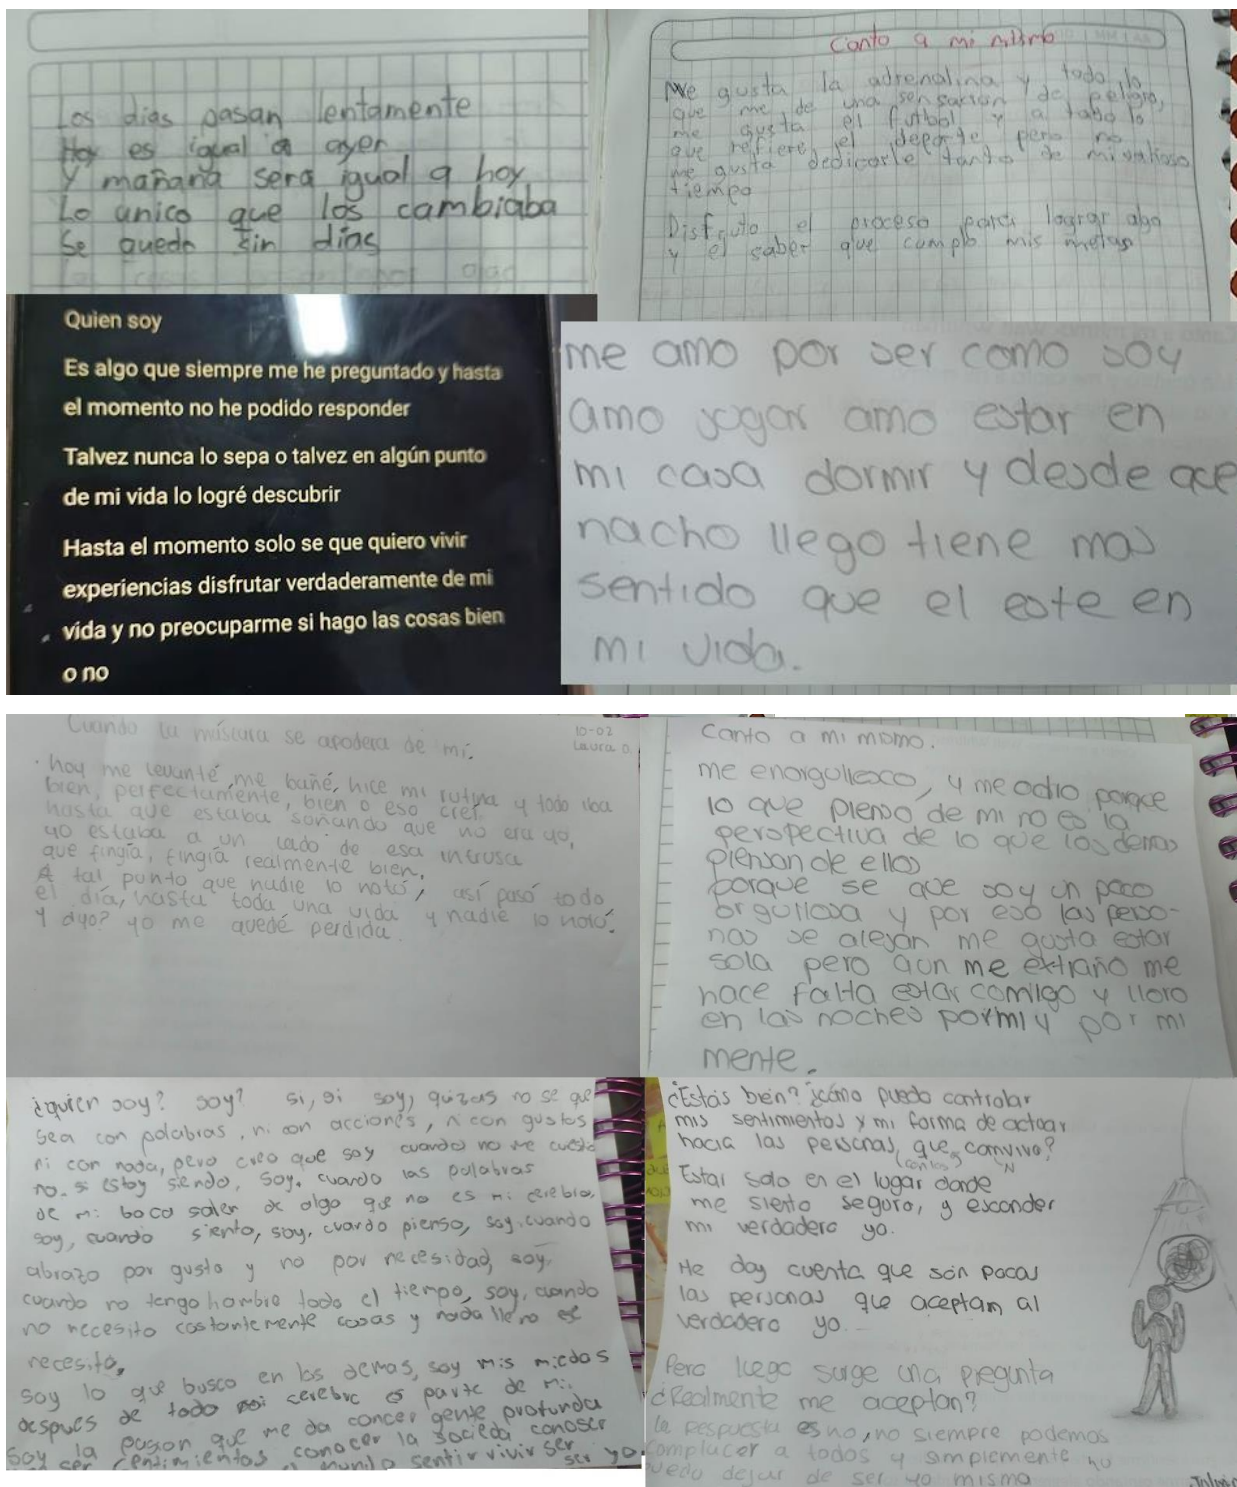 Los dias pasan lentamente
Hoy es igual a ayer
Y mañana sera igual a hoy
Lo unico que los cambiaba
Se quedo sin dias
Canto a mi mismo
Me gusta la adrenalina y todo lo
que me de una sensación de peligro,
me gusta el futbol y a todo lo
que refiere el deporte pero no
me gusta dedicarle tanto de mi valioso
tiempo
Disfruto el proceso para lograr algo
y el saber que cumplo mis metas
Quien soy
Es algo que siempre me he preguntado y hasta
el momento no he podido responder
Talvez nunca lo sepa o talvez en algún punto
de mi vida lo logré descubrir
Hasta el momento solo se que quiero vivir
experiencias disfrutar verdaderamente de mi
vida y no preocuparme si hago las cosas bien
o no
me amo por ser como soy
amo jugar amo estar en
mi casa dormir y desde que
nacho llego tiene mas
sentido que el este en
mi vida.
Cuando la máscara se apodera de mi.
10-02
Laura D.
hoy me levanté, me bañé, hice mi rutina y todo iba
bien, perfectamente, bien o eso creí
hasta que estaba soñando que no era yo,
yo estaba a un lado de esa intrusa
que fingía, fingía realmente bien.
A tal punto que nadie lo notó, así pasó todo
el día, hasta toda una vida y nadie lo notó.
Y yo? yo me quedé perdida.
Canto a mi mismo.
me enorgullesco, y me odio porque
lo que pienso de mi no es la
perspectiva de lo que los demas
piensan de ellos
porque se que soy un poco
orgullosa y por eso las perso-
nas se alejan me gusta estar
sola pero aun me extraño me
hace falta estar comigo y lloro
en las noches por mi y por mi
mente.
¿quien soy? soy? si, si soy, quizas no se que
sea con palabras, ni con acciones, ni con gustos
ni con nada, pero creo que soy cuando no me cuesta
no. si estoy siendo, soy. cuando las palabras
de mi boca salen de algo que no es mi cerebro,
soy, cuando siento, soy, cuando pienso, soy, cuando
abrazo por gusto y no por necesidad, soy,
cuando no tengo hambre todo el tiempo, soy, cuando
no necesito costantemente cosas y nada lleno ese
necesito,
soy lo que busco en los demas, soy mis miedos
despues de todo mi cerebro es parte de mi
soy la pasion que me da concer gente profunda
conocer la socieda conoser
sentir vivir ser
ser yo
¿Estás bien? ¿cómo puedo controlar
mis sentimientos y mi forma de actuar
hacia las personas que convivo?
(con las)
Estar solo en el lugar donde
me siento seguro, y esconder
mi verdadero yo.
Me doy cuenta que son pocas
las personas que aceptan al
verdadero yo.
Pero luego surge una pregunta
¿Realmente me aceptan?
la respuesta es no, no siempre podemos
complacer a todos y simplemente no
puedo dejar de ser yo misma